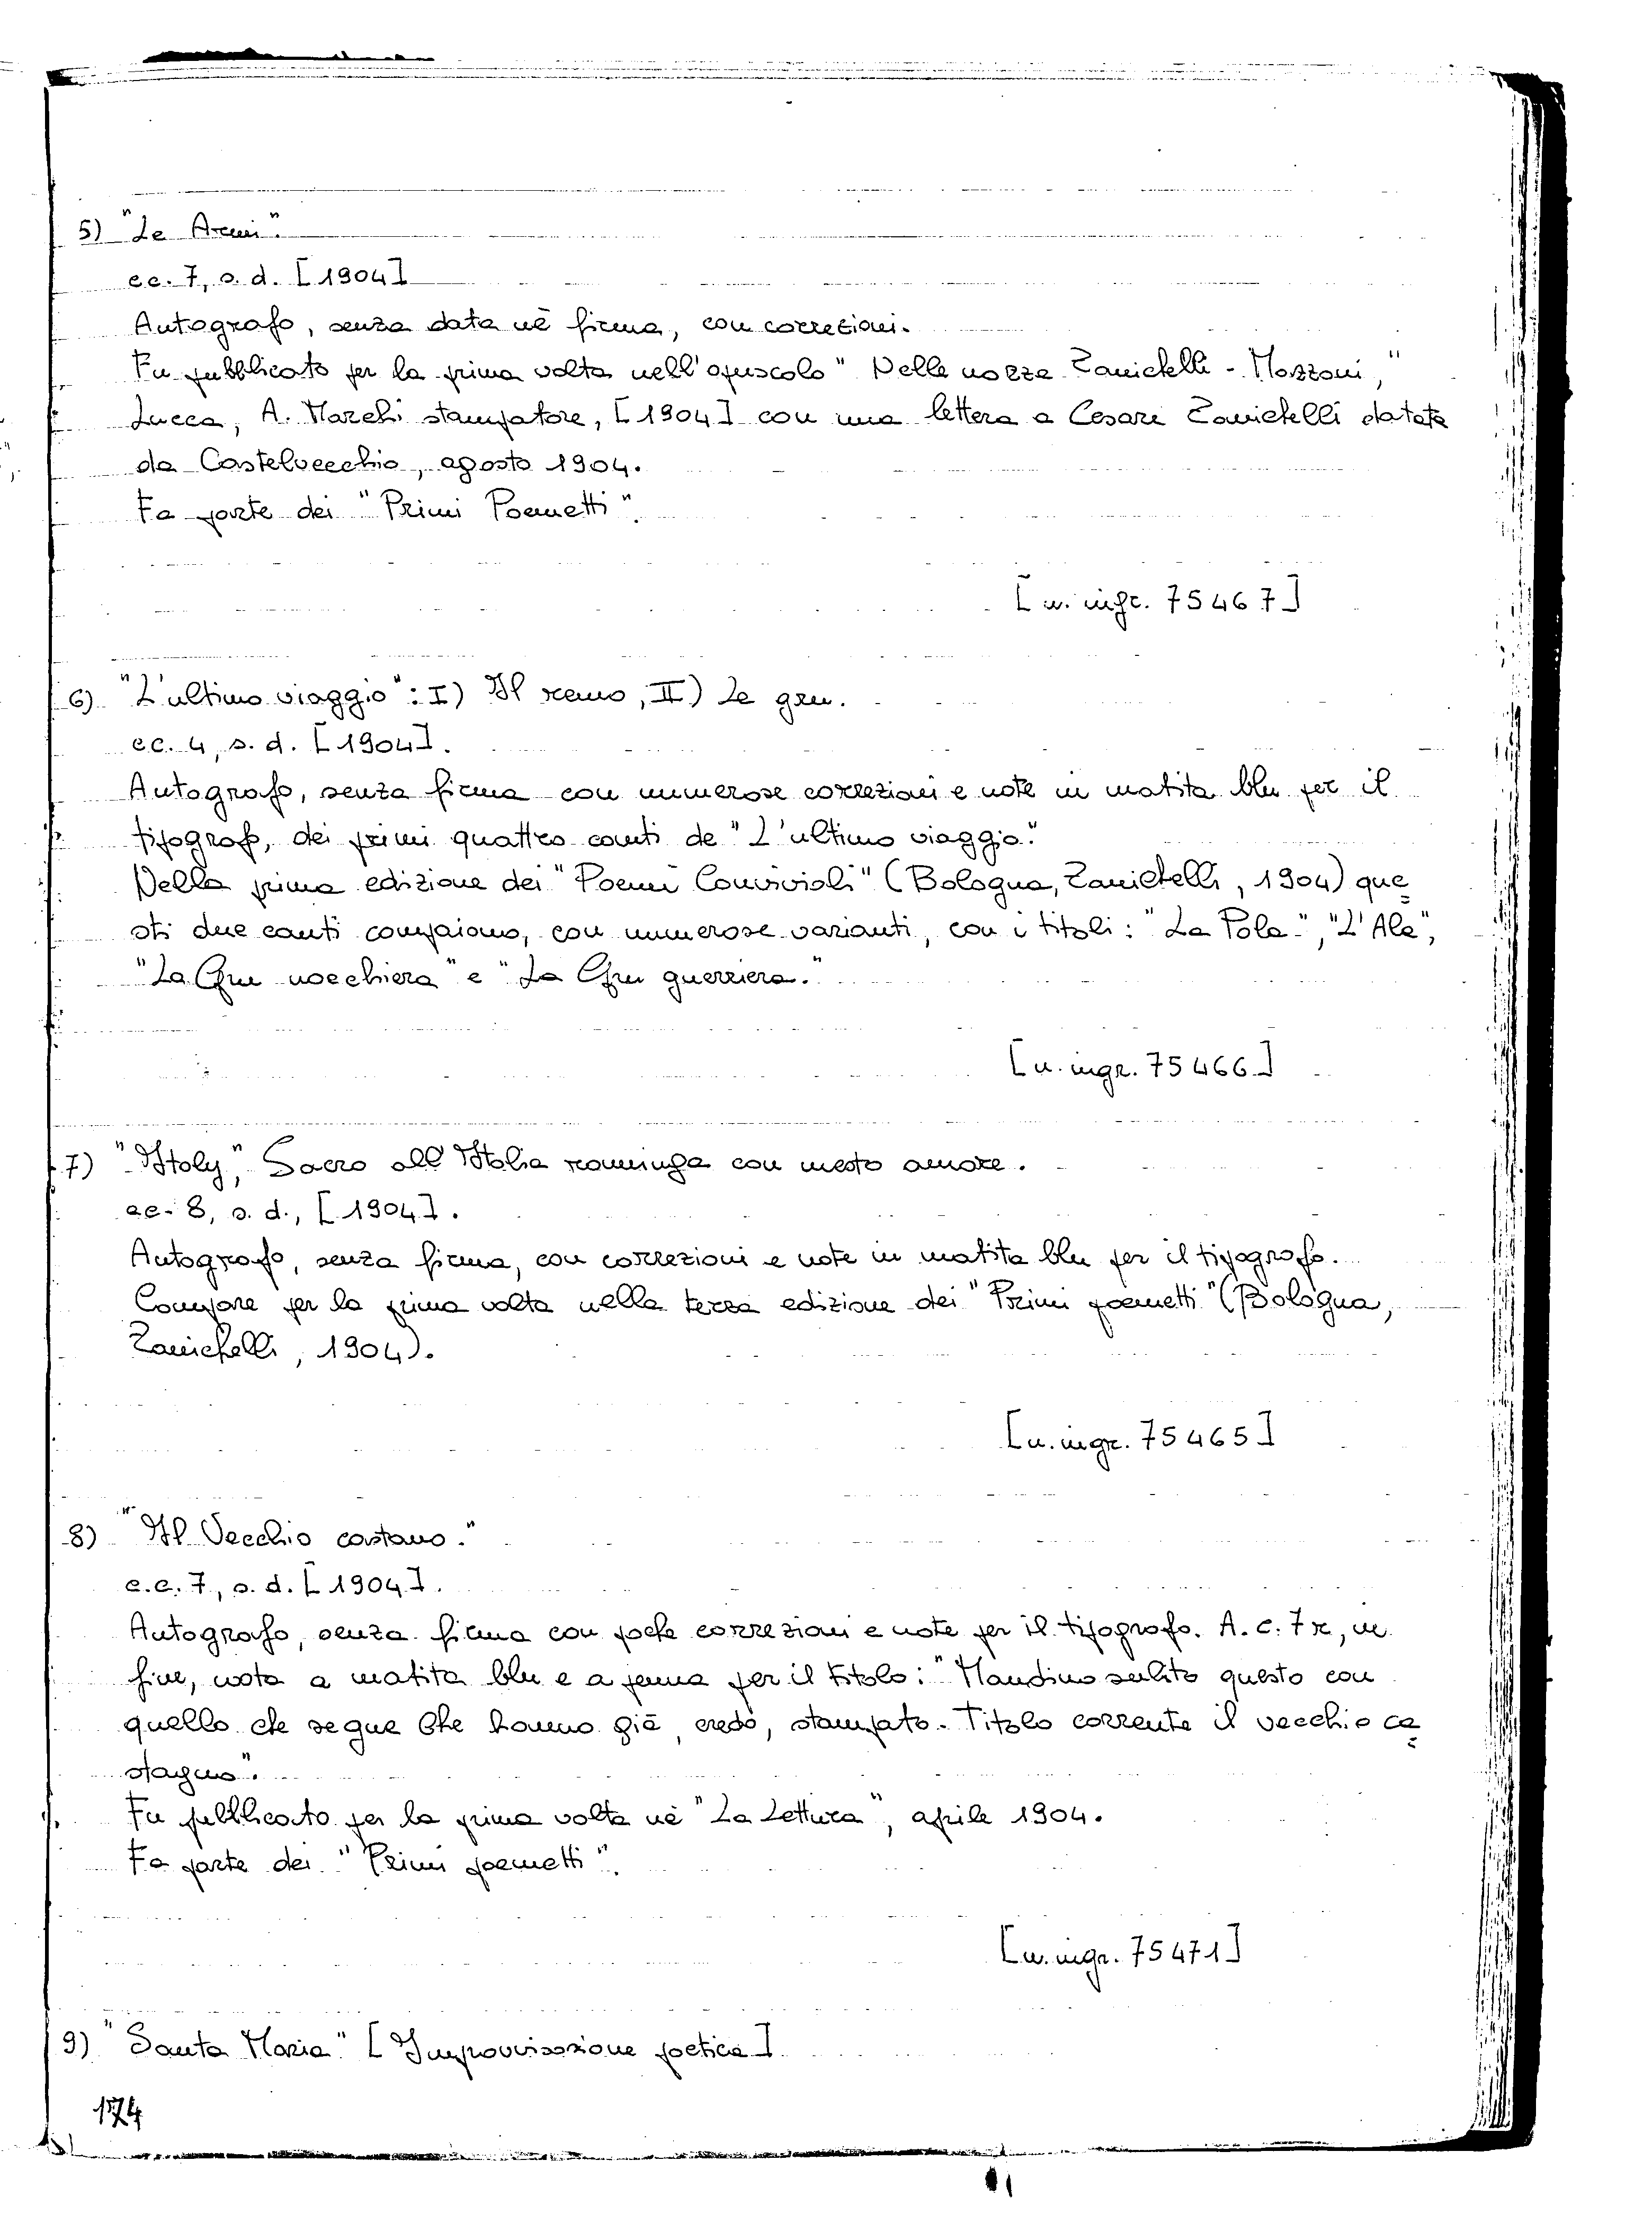 5) "Le Armi".
cc. 7, s. d. [1904]
Autografo, senza data nè firma, con correzioni.
Fu pubblicato per la prima volta nell'opuscolo "Nelle nozze Zanichelli - Mozzoni,"
Lucca, A. Marchi stampatore, [1904] con una lettera a Cesare Zanichelli datata
da Castelvecchio, agosto 1904.
Fa parte dei "Primi Poemetti".
[n. ingr. 75467]
6) "L'ultimo viaggio": I) Il remo, II) Le gru.
cc. 4, s. d. [1904].
Autografo, senza firma con numerose correzioni e note in matita blu per il
tipografo, dei primi quattro canti de "L'ultimo viaggio."
Nella prima edizione dei "Poemi Conviviali" (Bologna, Zanichelli, 1904) que
sti due canti compaiono, con numerose varianti, con i titoli: "La Pala", "L'Ala",
"La Gru nocchiera" e "La Gru guerriera."
[n. ingr. 75466]
7) "Italy," Sacro all'Italia raminga con mesto amore.
cc. 8, s. d., [1904].
Autografo, senza firma, con correzioni e note in matita blu per il tipografo.
Compare per la prima volta nella terza edizione dei "Primi poemetti" (Bologna,
Zanichelli, 1904).
[n. ingr. 75465]
8) "Il Vecchio castano."
c.c. 7, s. d. [1904].
Autografo, senza firma con poche correzioni e note per il tipografo. A. c. 7r, in
fine, nota a matita blu e a penna per il titolo: "Mandino subito questo con
quello che segue che hanno già, credo, stampato. Titolo corrente il vecchio ca
stagno".
Fu pubblicato per la prima volta nè "La Lettura", aprile 1904.
Fa parte dei "Primi poemetti".
[n. ingr. 75471]
9) "Santa Maria" [Improvvisazione poetica]
174